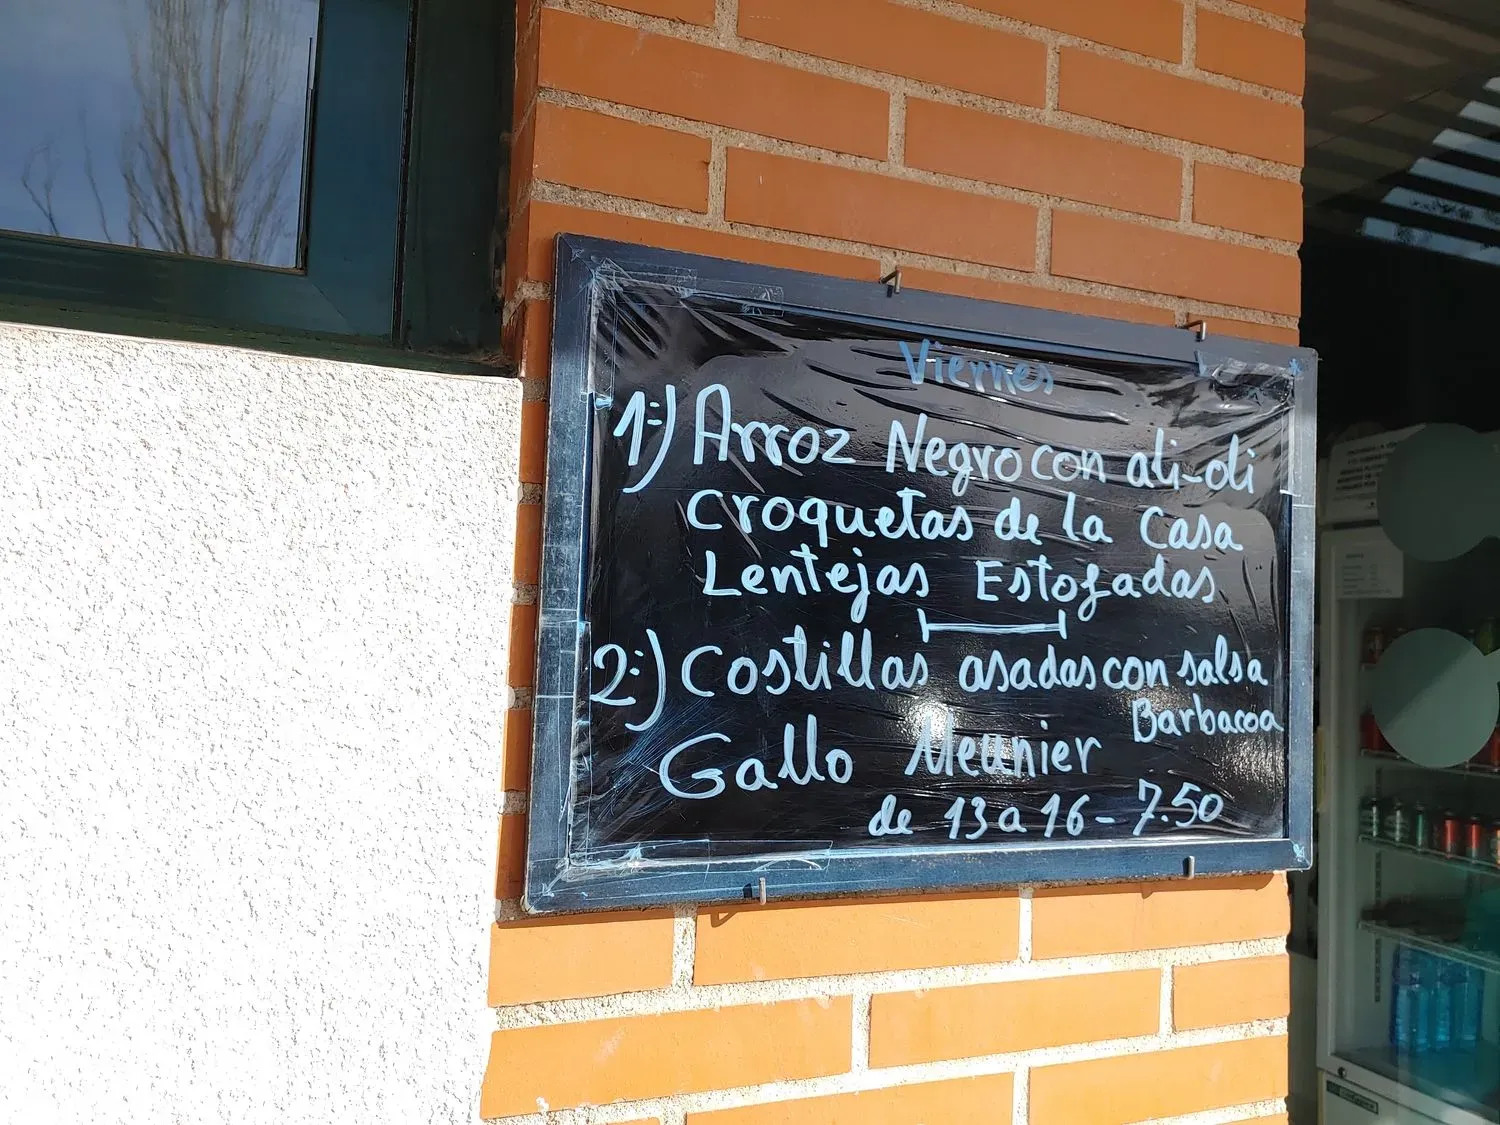 Viernes
1:) Arroz Negro con ali-oli
Croquetas de la Casa
Lentejas Estofadas
2:) Costillas asadas con salsa
Barbacoa
Gallo Meunier
de 13 a 16 - 7.50